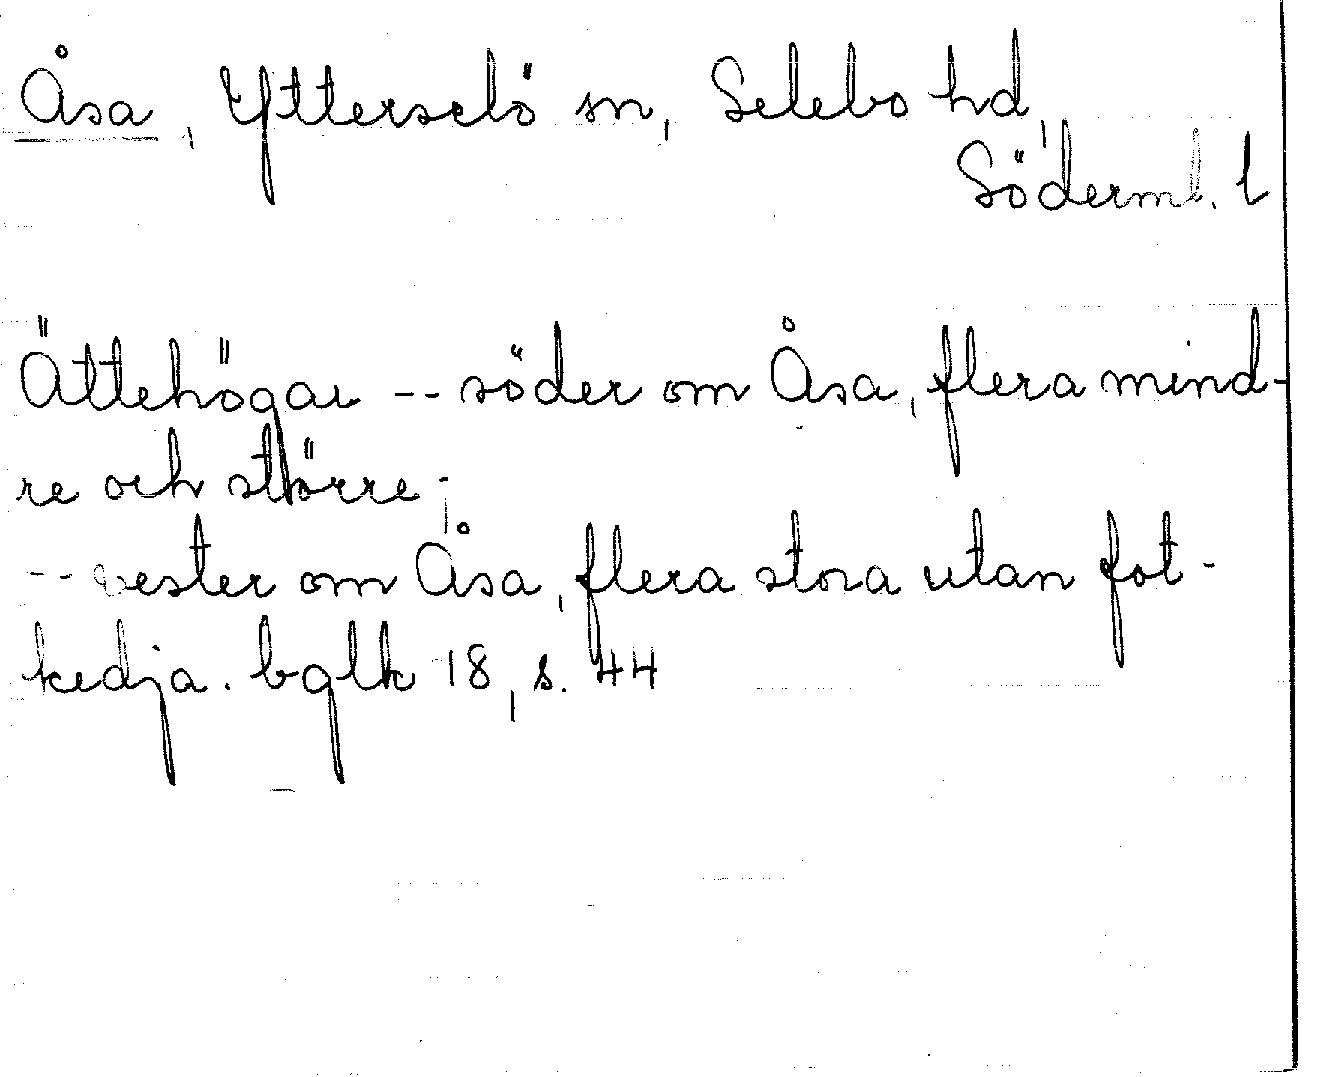 Åsa, Ytterselö sn, Selebo hd,
Söderml. l
Ättehögar -- söder om Åsa, flera mind-
re och större;
-- vester om Åsa, flera stora utan fot-
kedja. bglk 18, s. 44